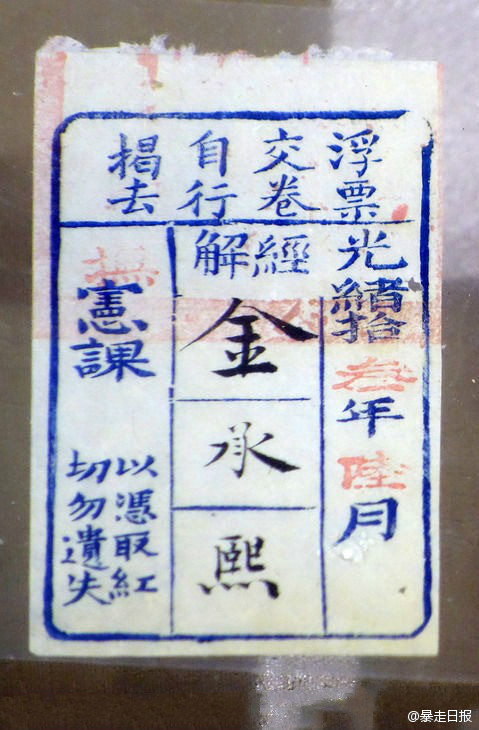 浮票
交卷
自行
揭去
光緒拾叁年陸月
經解
金承熙
撫憲課
以憑取紅
切勿遺失
@暴走日报